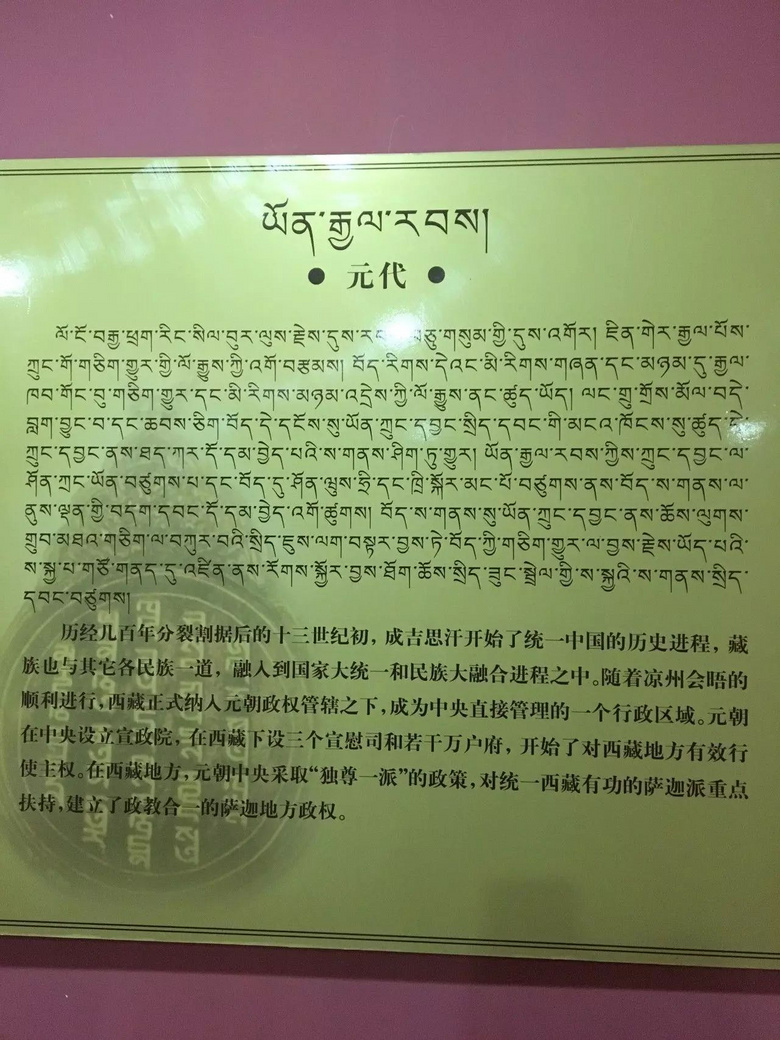 ཡོན་རྒྱལ་རབས།
● 元代 ●
ལོ་ངོ་བརྒྱ་ཕྲག་རིང་སིལ་བུར་ལུས་རྗེས་དུས་རབས་བཅུ་གསུམ་གྱི་དུས་འགོར། ཇིན་གེར་རྒྱལ་པོས་
ཀྲུང་གོ་གཅིག་གྱུར་གྱི་ལོ་རྒྱུས་ཀྱི་འགོ་བརྩམས། བོད་རིགས་དེའང་མི་རིགས་གཞན་དང་མཉམ་དུ་རྒྱལ་
ཁབ་གོང་བུ་གཅིག་གྱུར་དང་མི་རིགས་མཉམ་འདྲེས་ཀྱི་ལོ་རྒྱུས་ནང་ཚུད་ཡོད། ལང་གྲུ་གྲོས་མོལ་བདེ་
བླག་བྱུང་བ་དང་ཆབས་ཅིག་བོད་དེ་དངོས་སུ་ཡོན་ཀྲུང་དབྱང་སྲིད་དབང་གི་མངའ་ཁོངས་སུ་ཚུད་དེ་
ཀྲུང་དབྱང་ནས་ཐད་ཀར་དོ་དམ་བྱེད་པའི་ས་གནས་ཤིག་ཏུ་གྱུར། ཡོན་རྒྱལ་རབས་ཀྱིས་ཀྲུང་དབྱང་ལ་
ཤོན་ཀྲང་ཡོན་བཙུགས་པ་དང་བོད་དུ་ཤོན་ཝུས་ཧྲི་དང་ཁྲི་སྐོར་མང་པོ་བཙུགས་ནས་བོད་ས་གནས་ལ་
ནུས་ལྡན་གྱི་བདག་དབང་དོ་དམ་བྱེད་འགོ་ཚུགས། བོད་ས་གནས་སུ་ཡོན་ཀྲུང་དབྱང་ནས་ཆོས་ལུགས་
གྲུབ་མཐའ་གཅིག་ལ་བཀུར་བའི་སྲིད་ཇུས་ལག་བསྟར་བྱས་ཏེ་བོད་ཀྱི་གཅིག་གྱུར་ལ་བྱས་རྗེས་ཡོད་པའི་
ས་སྐྱ་པ་གཙོ་གནད་དུ་འཛིན་ནས་རོགས་སྐྱོར་བྱས་ཐོག་ཆོས་སྲིད་ཟུང་སྦྲེལ་གྱི་ས་སྐྱའི་ས་གནས་སྲིད་
དབང་བཙུགས།
历经几百年分裂割据后的十三世纪初，成吉思汗开始了统一中国的历史进程，藏
族也与其它各民族一道，融入到国家大统一和民族大融合进程之中。随着凉州会晤的
顺利进行，西藏正式纳入元朝政权管辖之下，成为中央直接管理的一个行政区域。元朝
在中央设立宣政院，在西藏下设三个宣慰司和若干万户府，开始了对西藏地方有效行
使主权。在西藏地方，元朝中央采取“独尊一派”的政策，对统一西藏有功的萨迦派重点
扶持，建立了政教合一的萨迦地方政权。